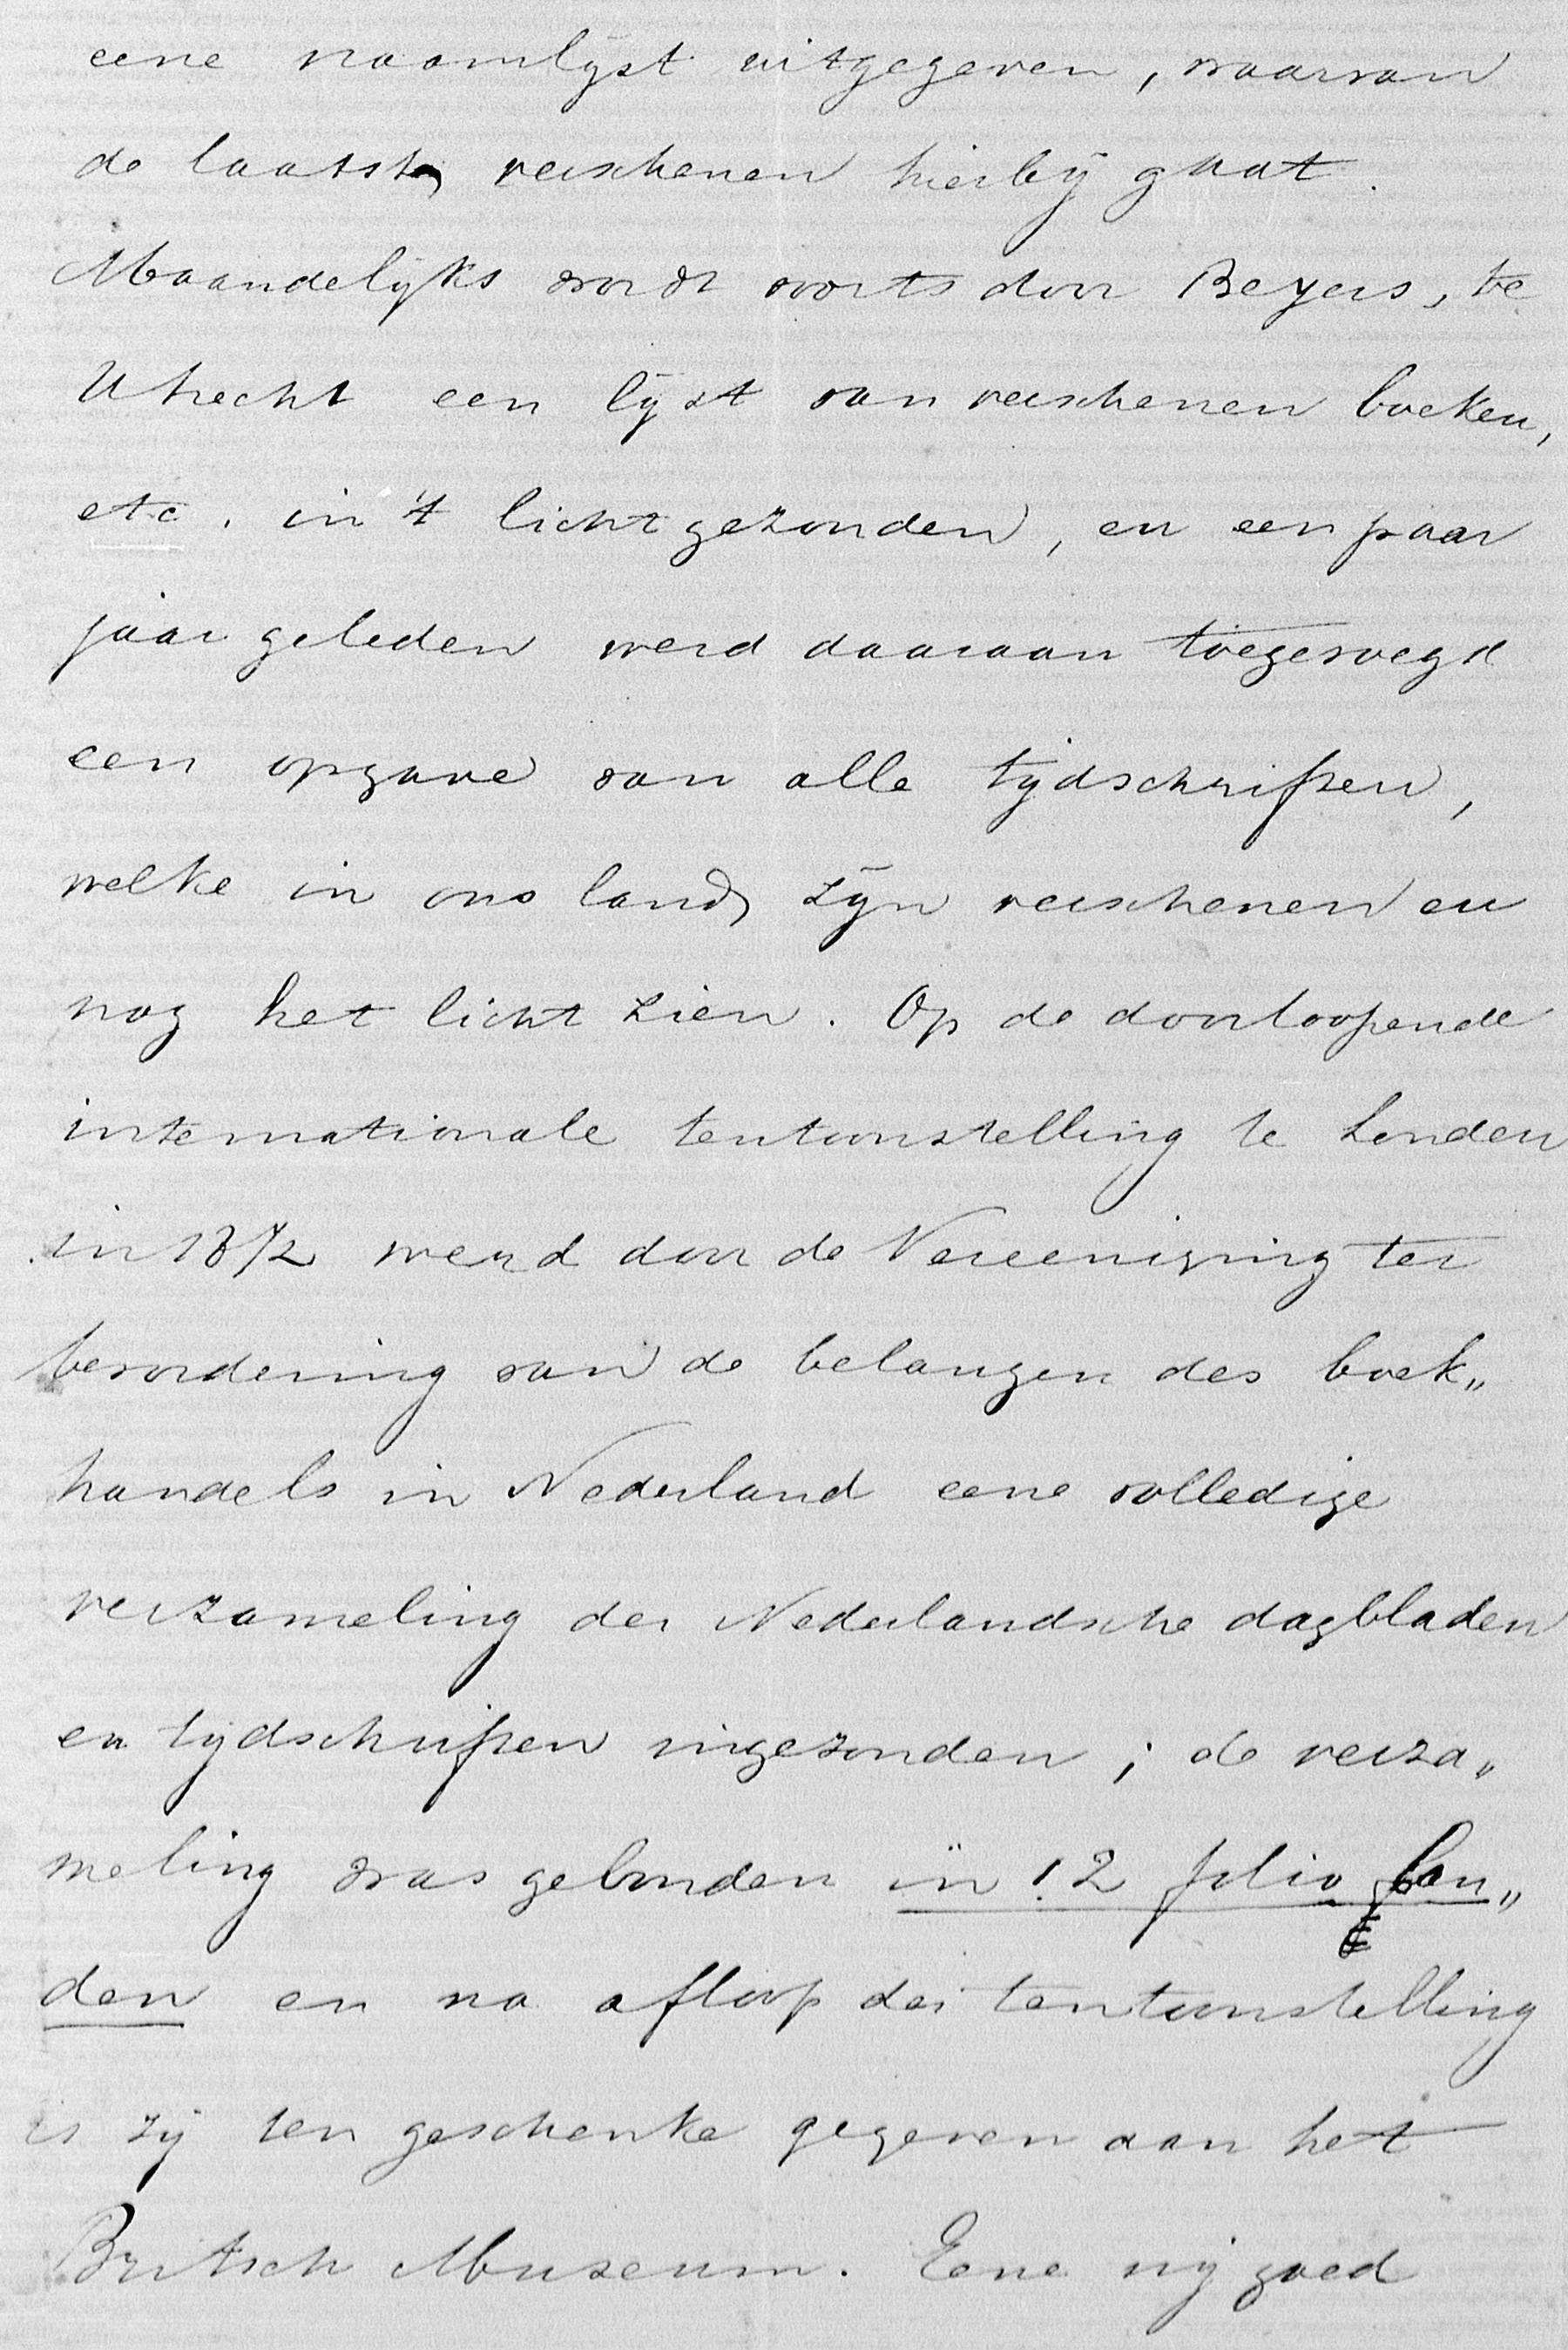 eene naamlijst uitgegeven, waarvan
de laatst verschenen hierbij gaat.
Maandelijks wordt voorts door Beijers, te
Utrecht een lijst van verschenen boeken,
etc. in 't licht gezonden, en een paar
jaar geleden werd daaraan toegevoegd
een opgave van alle tijdschriften,
welke in ons land zijn verschenen en
nog het licht zien. Op de doorloopende
internationale tentoonstelling te Londen
in 1872 werd door de Vereeniging ter
bevordering van de belangen des boek„
handels in Nederland eene volledige
verzameling der Nederlandsche dagbladen
en tijdschriften ingezonden; de verza„
meling was gebonden in 12 folio ban„
den en na afloop der tentoonstelling
is zij ten geschenke gegeven aan het
Britsch Museum. Eene vrij goed